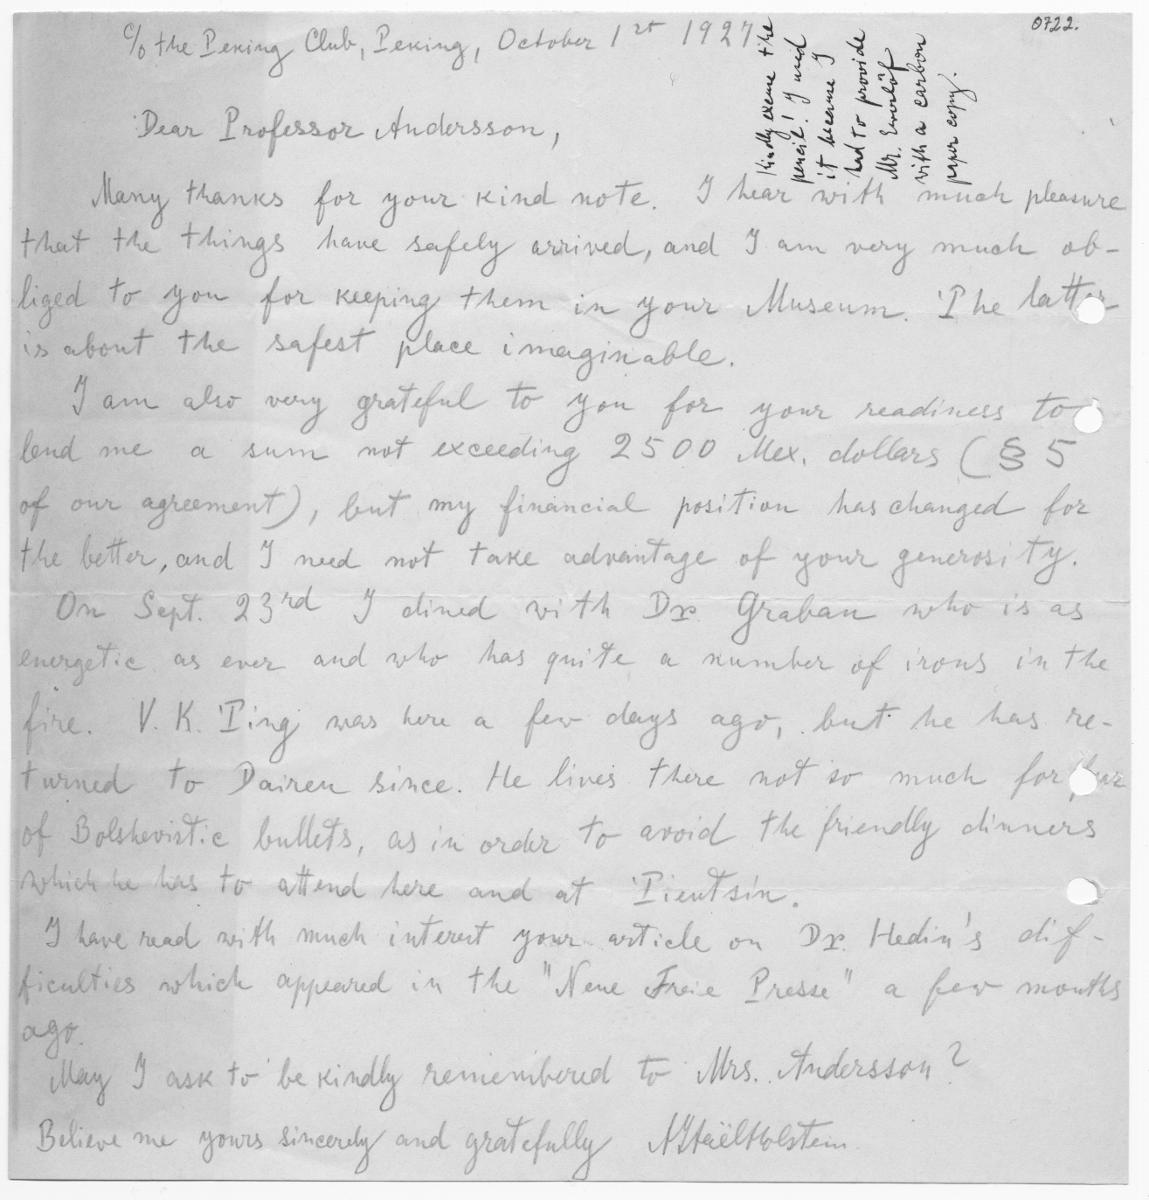 0722.
c/o the Peking Club, Peking, October 1st 1927
Kindly excuse the
pencil! I used
it because I
had to provide
Mr.
with a carbon
paper copy.
Dear Professor Andersson,
Many thanks for your kind note. I hear with much pleasure
that the things have safely arrived, and I am very much ob-
liged to you for keeping them in your Museum. The latter
is about the safest place imaginable.
I am also very grateful to you for your readiness to
lend me a sum not exceeding 2500 Mex. dollars (§ 5
of our agreement), but my financial position has changed for
the better, and I need not take advantage of your generosity.
On Sept. 23rd I dined with Dr. Grabau who is as
energetic as ever and who has quite a number of irons in the
fire. V. K. Ting was here a few days ago, but he has re-
turned to Dairen since. He lives there not so much for fear
of Bolshevistic bullets, as in order to avoid the friendly dinners
which he has to attend here and at Tientsin.
I have read with much interest your article on Dr. Hedin's dif-
ficulties which appeared in the "Neue Freie Presse" a few months
ago.
May I ask to be kindly remembered to Mrs. Andersson?
Believe me yours sincerely and gratefully AStaëlHolstein.